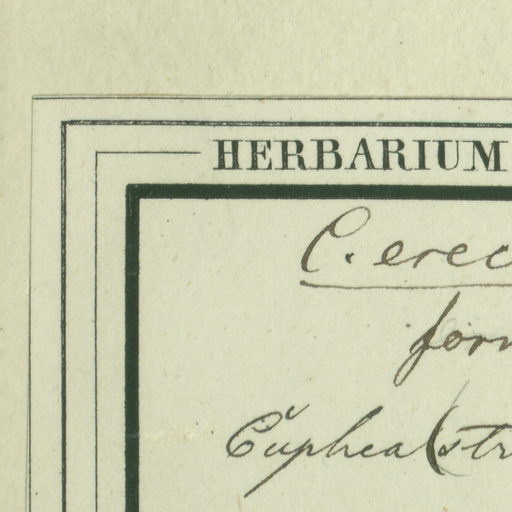 HERBARIUM
C. erec
form
Cuphea (str